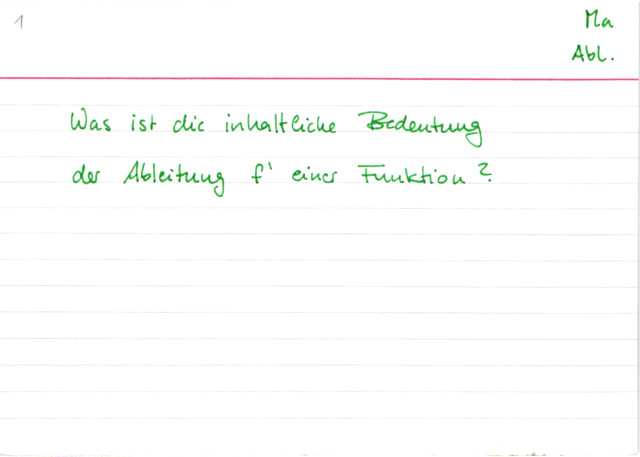 1
Ma
Abl.
Was ist die inhaltliche Bedeutung
der Ableitung f' einer Funktion?